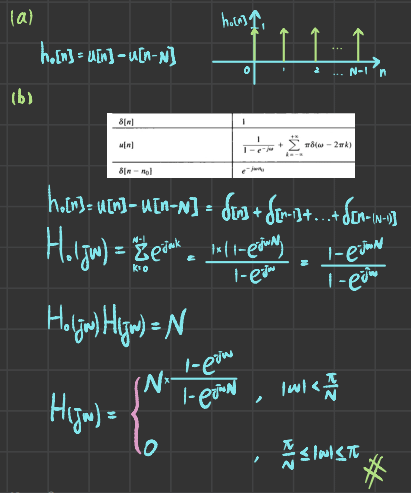 (a)
h₀[n]
1
h₀[n] = u[n] - u[n-N]
0 1 2 ... N-1 n
...
(b)
δ[n] 1
u[n] 1/(1 - e^{-jω}) + Σ_{k=-∞}^{+∞} πδ(ω - 2πk)
δ[n - n₀] e^{-jωn₀}
h₀[n] = u[n] - u[n-N] = δ[n] + δ[n-1] + ... + δ[n-(N-1)]
H₀(jω) = Σ_{k=0}^{N-1} e^{-jωk} = 1×(1-e^{-jωN})/(1-e^{-jω}) = (1-e^{-jωN})/(1-e^{-jω})
H₀(jω)H(jω) = N
H(jω) = { N × (1-e^{-jω})/(1-e^{-jωN}) , |ω| < π/N
0 , π/N ≤ |ω| ≤ π #